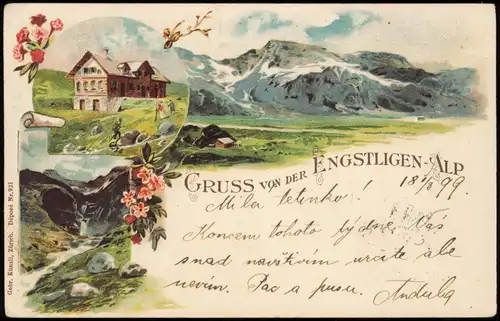 GRUSS VON DER ENGSTLIGEN-ALP
18/8 99
Milá tetinko!
Koncem tohoto týdne Vás
snad navštívím určitě ale
nevím. Pac a pusu. Andulka
Gebr. Künzli, Zürich. Déposé Nr. 821